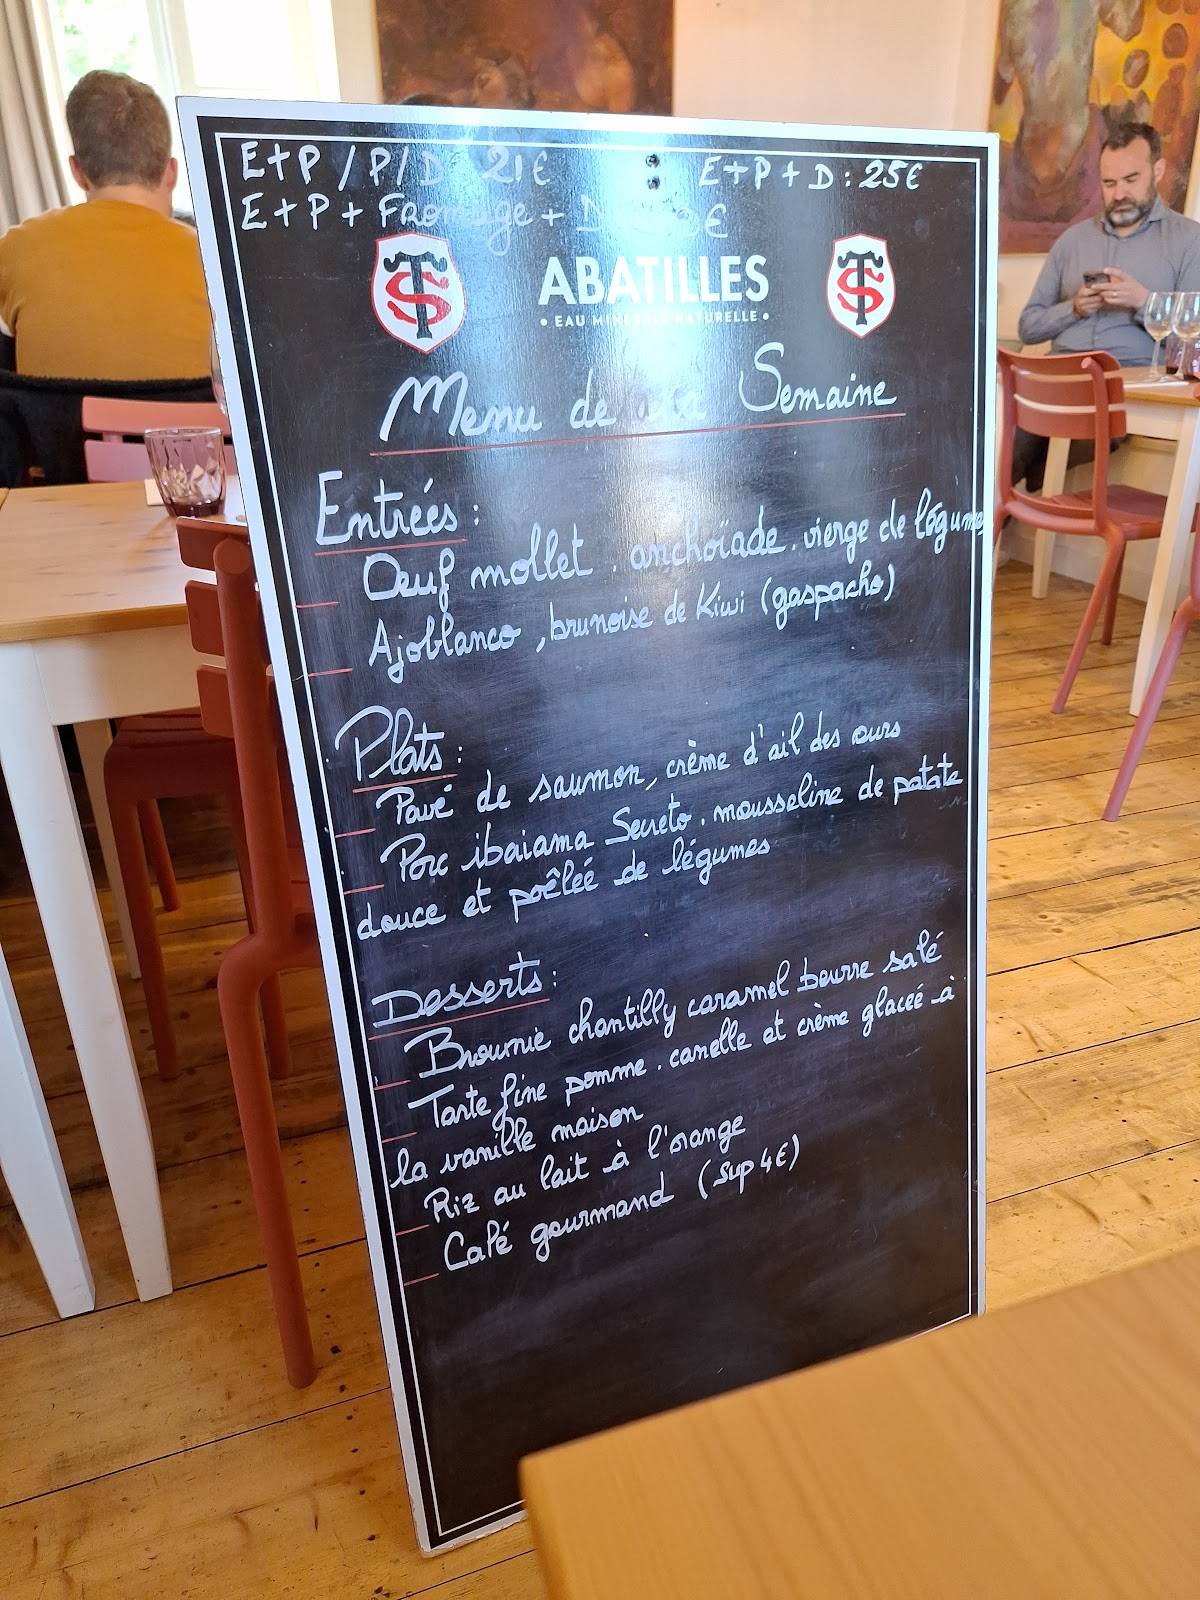 E+P / P/D 21€ E+P+D : 25€
E+P+ Fromage + D €
TS
ABATILLES
TS
• EAU MINÉRALE NATURELLE •
Menu de la Semaine
Entrées :
Oeuf mollet . anchoïade . vierge de légumes
Ajoblanco , brunoise de Kiwi (gaspacho)
Plats :
Pavé de saumon, crème d'ail des ours
Porc ibaiama Secreto . mousseline de patate
douce et poêlée de légumes
Desserts :
Brownie chantilly caramel beurre salé
Tarte fine pomme . canelle et crème glaceé à
la vanille maison
Riz au lait à l'orange
Café gourmand (sup 4€)